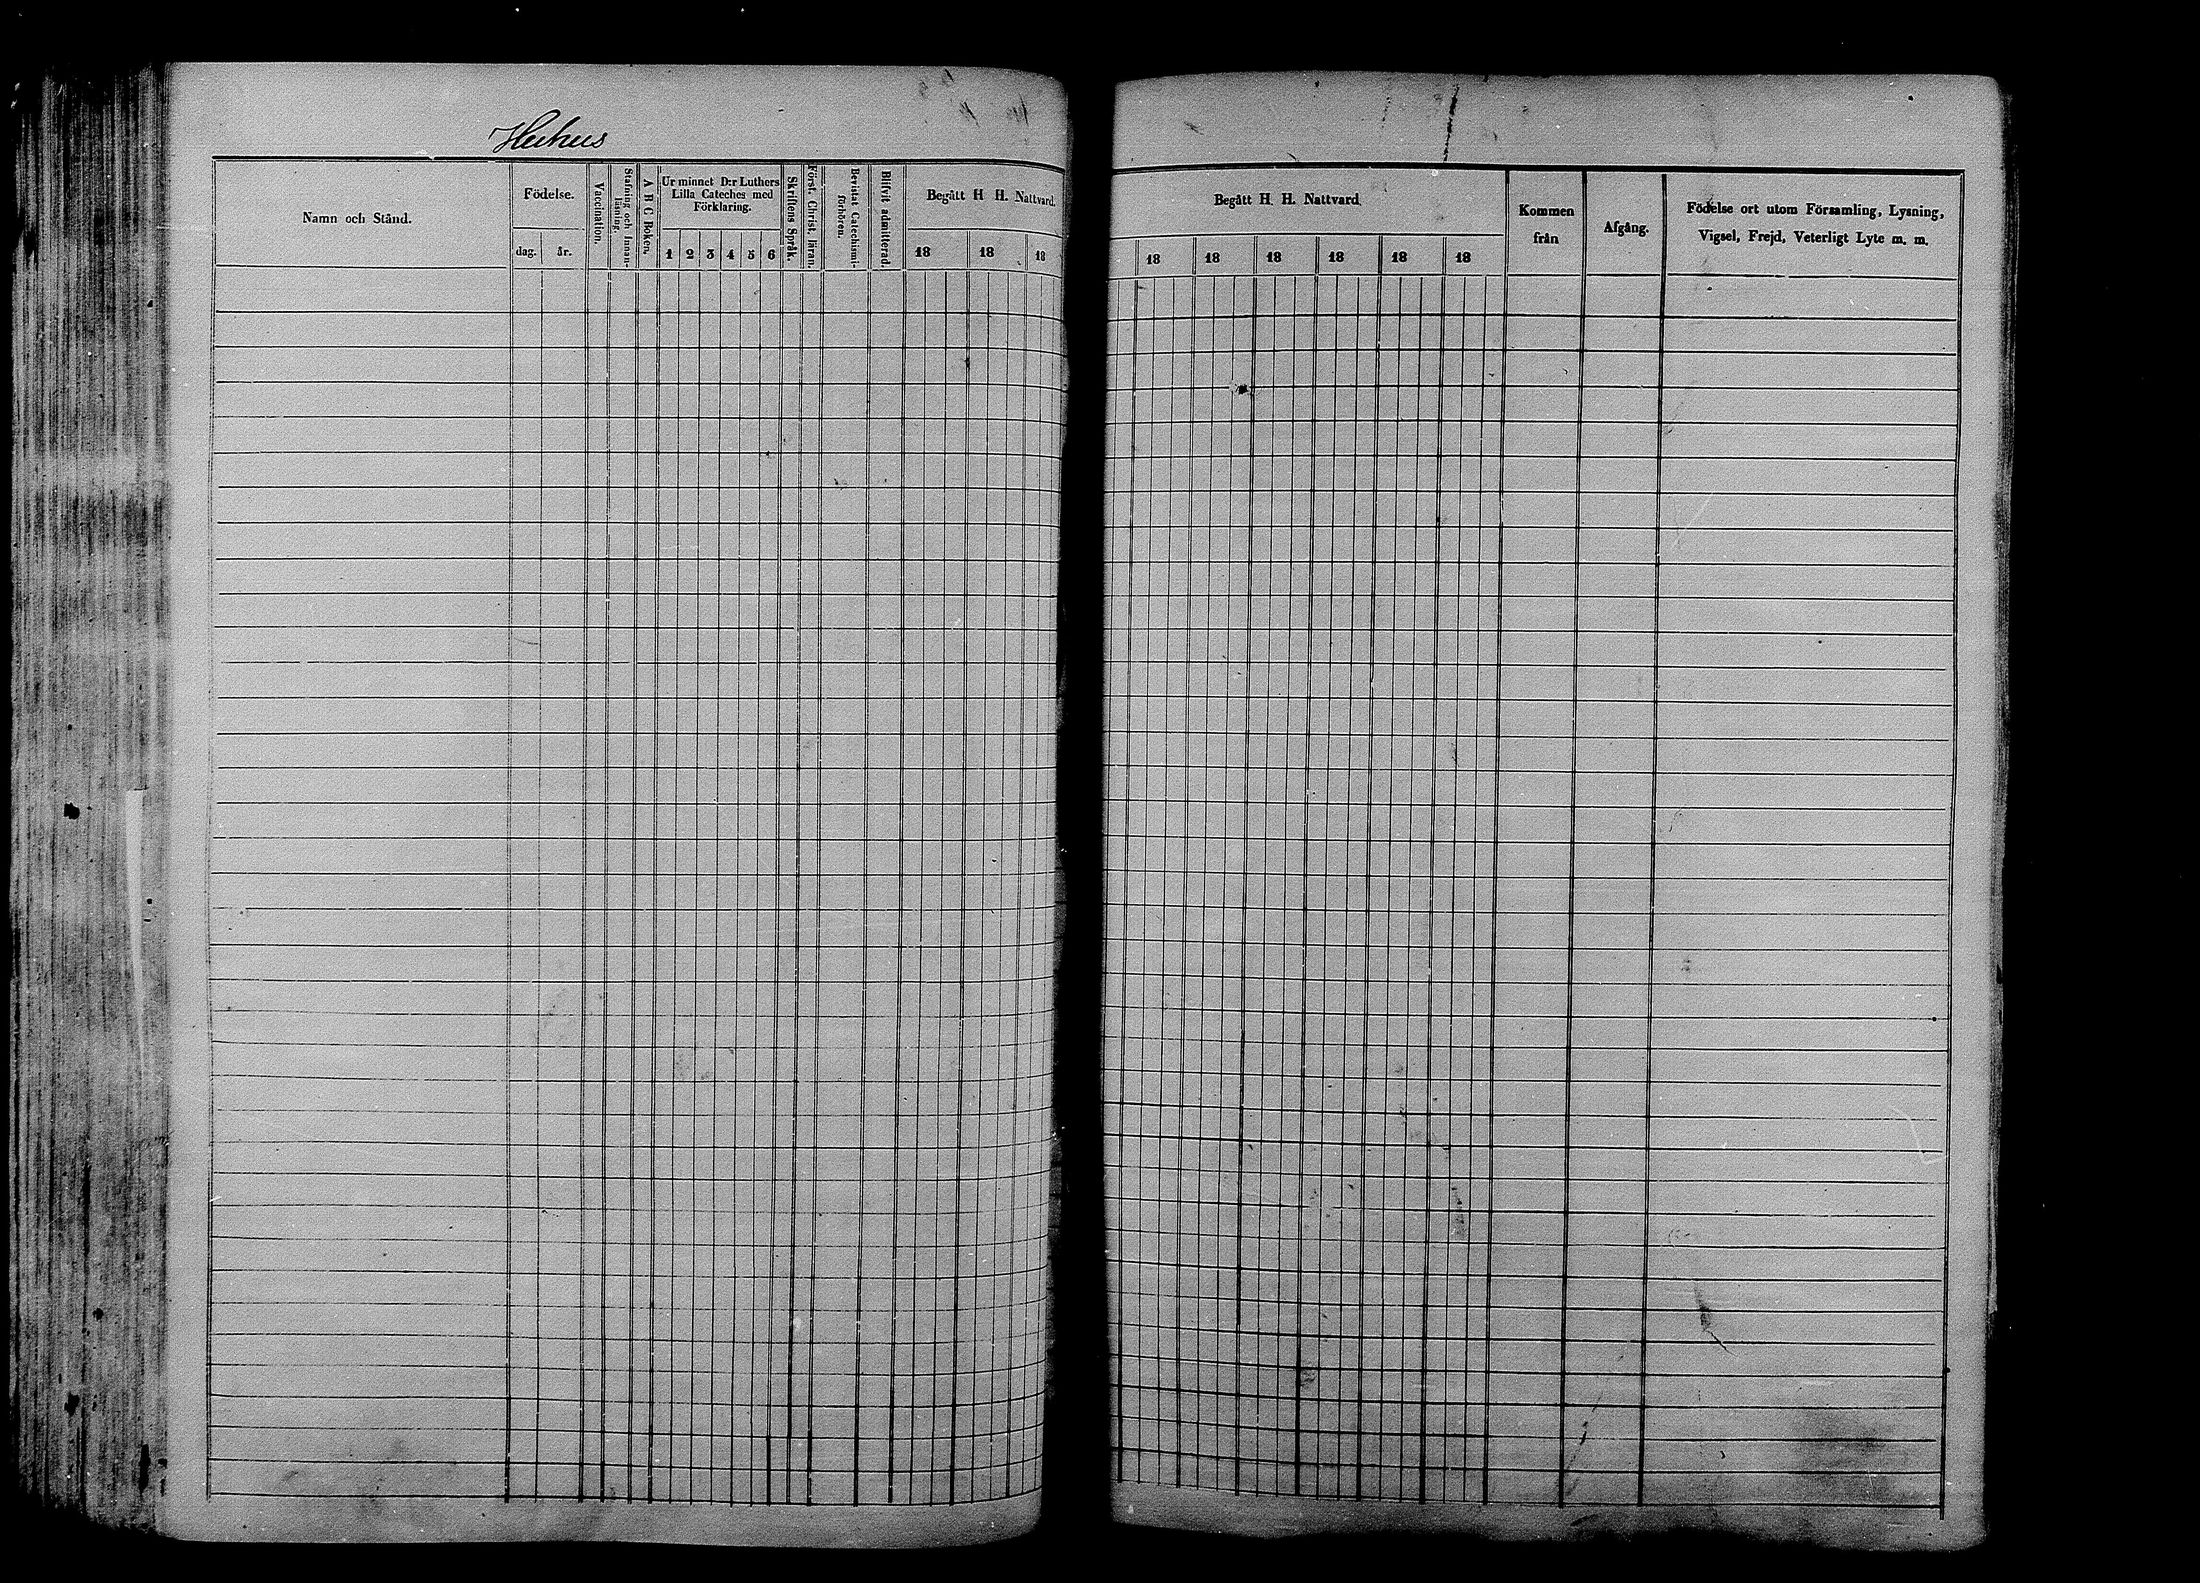 Huhus
Namn och Stånd.
Födelse.
dag. år.
Vaccination.
Stafning och Innan-
läsning.
A B C Boken.
Ur minnet D:r Luthers
Lilla Cateches med
Förklaring.
1 2 3 4 5 6
Skriftens Språk.
Först. Christ. läran.
Bevistat Catechismi-
förhören.
Blifvit admitterad.
Begått H H. Nattvard.
18 18 18
Begått H. H. Nattvard.
18 18 18 18 18 18
Kommen
från
Afgång.
Födelse ort utom Församling, Lysning,
Vigsel, Frejd, Veterligt Lyte m. m.